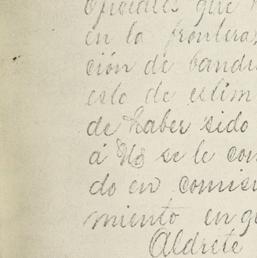 Oficiales que
en la frontera
ción de bandi
esto de estim
de haber sido
á U se le con
do en comisi
miento en q
Aldrete